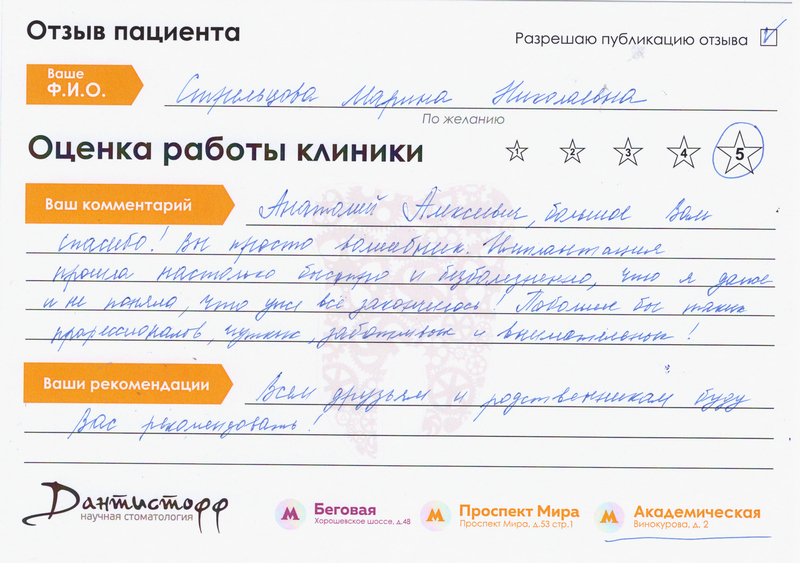 Отзыв пациента
Разрешаю публикацию отзыва
Ваше
Ф.И.О.
Стрельцова Марина Николаевна
По желанию
Оценка работы клиники
1 2 3 4 5
Ваш комментарий
Анатолий Алексеевич, большое Вам
спасибо! Вы просто волшебник. Имплантация
прошла настолько быстро и безболезненно, что я даже
и не поняла, что уже всё закончилось! Побольше бы таких
профессионалов, чутких, заботливых и внимательных!
Ваши рекомендации
Всем друзьям и родственникам буду
Вас рекомендовать!
Дантистофф
научная стоматология
Беговая
Хорошевское шоссе, д.48
Проспект Мира
Проспект Мира, д.53 стр.1
Академическая
Винокурова, д. 2